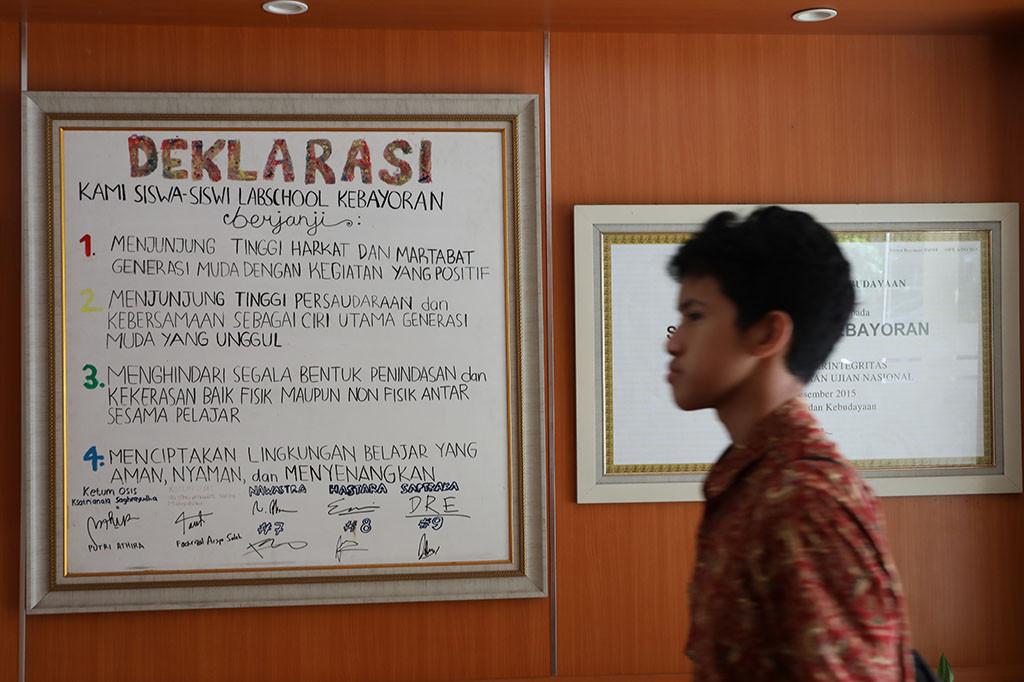 DEKLARASI
KAMI SISWA-SISWI LABSCHOOL KEBAYORAN
berjanji:
1. MENJUNJUNG TINGGI HARKAT DAN MARTABAT
GENERASI MUDA DENGAN KEGIATAN YANG POSITIF
2. MENJUNJUNG TINGGI PERSAUDARAAN dan
KEBERSAMAAN SEBAGAI CIRI UTAMA GENERASI
MUDA YANG UNGGUL
3. MENGHINDARI SEGALA BENTUK PENINDASAN dan
KEKERASAN BAIK FISIK MAUPUN NON FISIK ANTAR
SESAMA PELAJAR
4. MENCIPTAKAN LINGKUNGAN BELAJAR YANG
AMAN, NYAMAN, dan MENYENANGKAN
Ketum OSIS NAWASTRA HASTARA SAFRAKA
DRE
#7 #8 #9
PUTRI ATHIRA
KEBAYORAN
UJIAN NASIONAL
2015
dan Kebudayaan